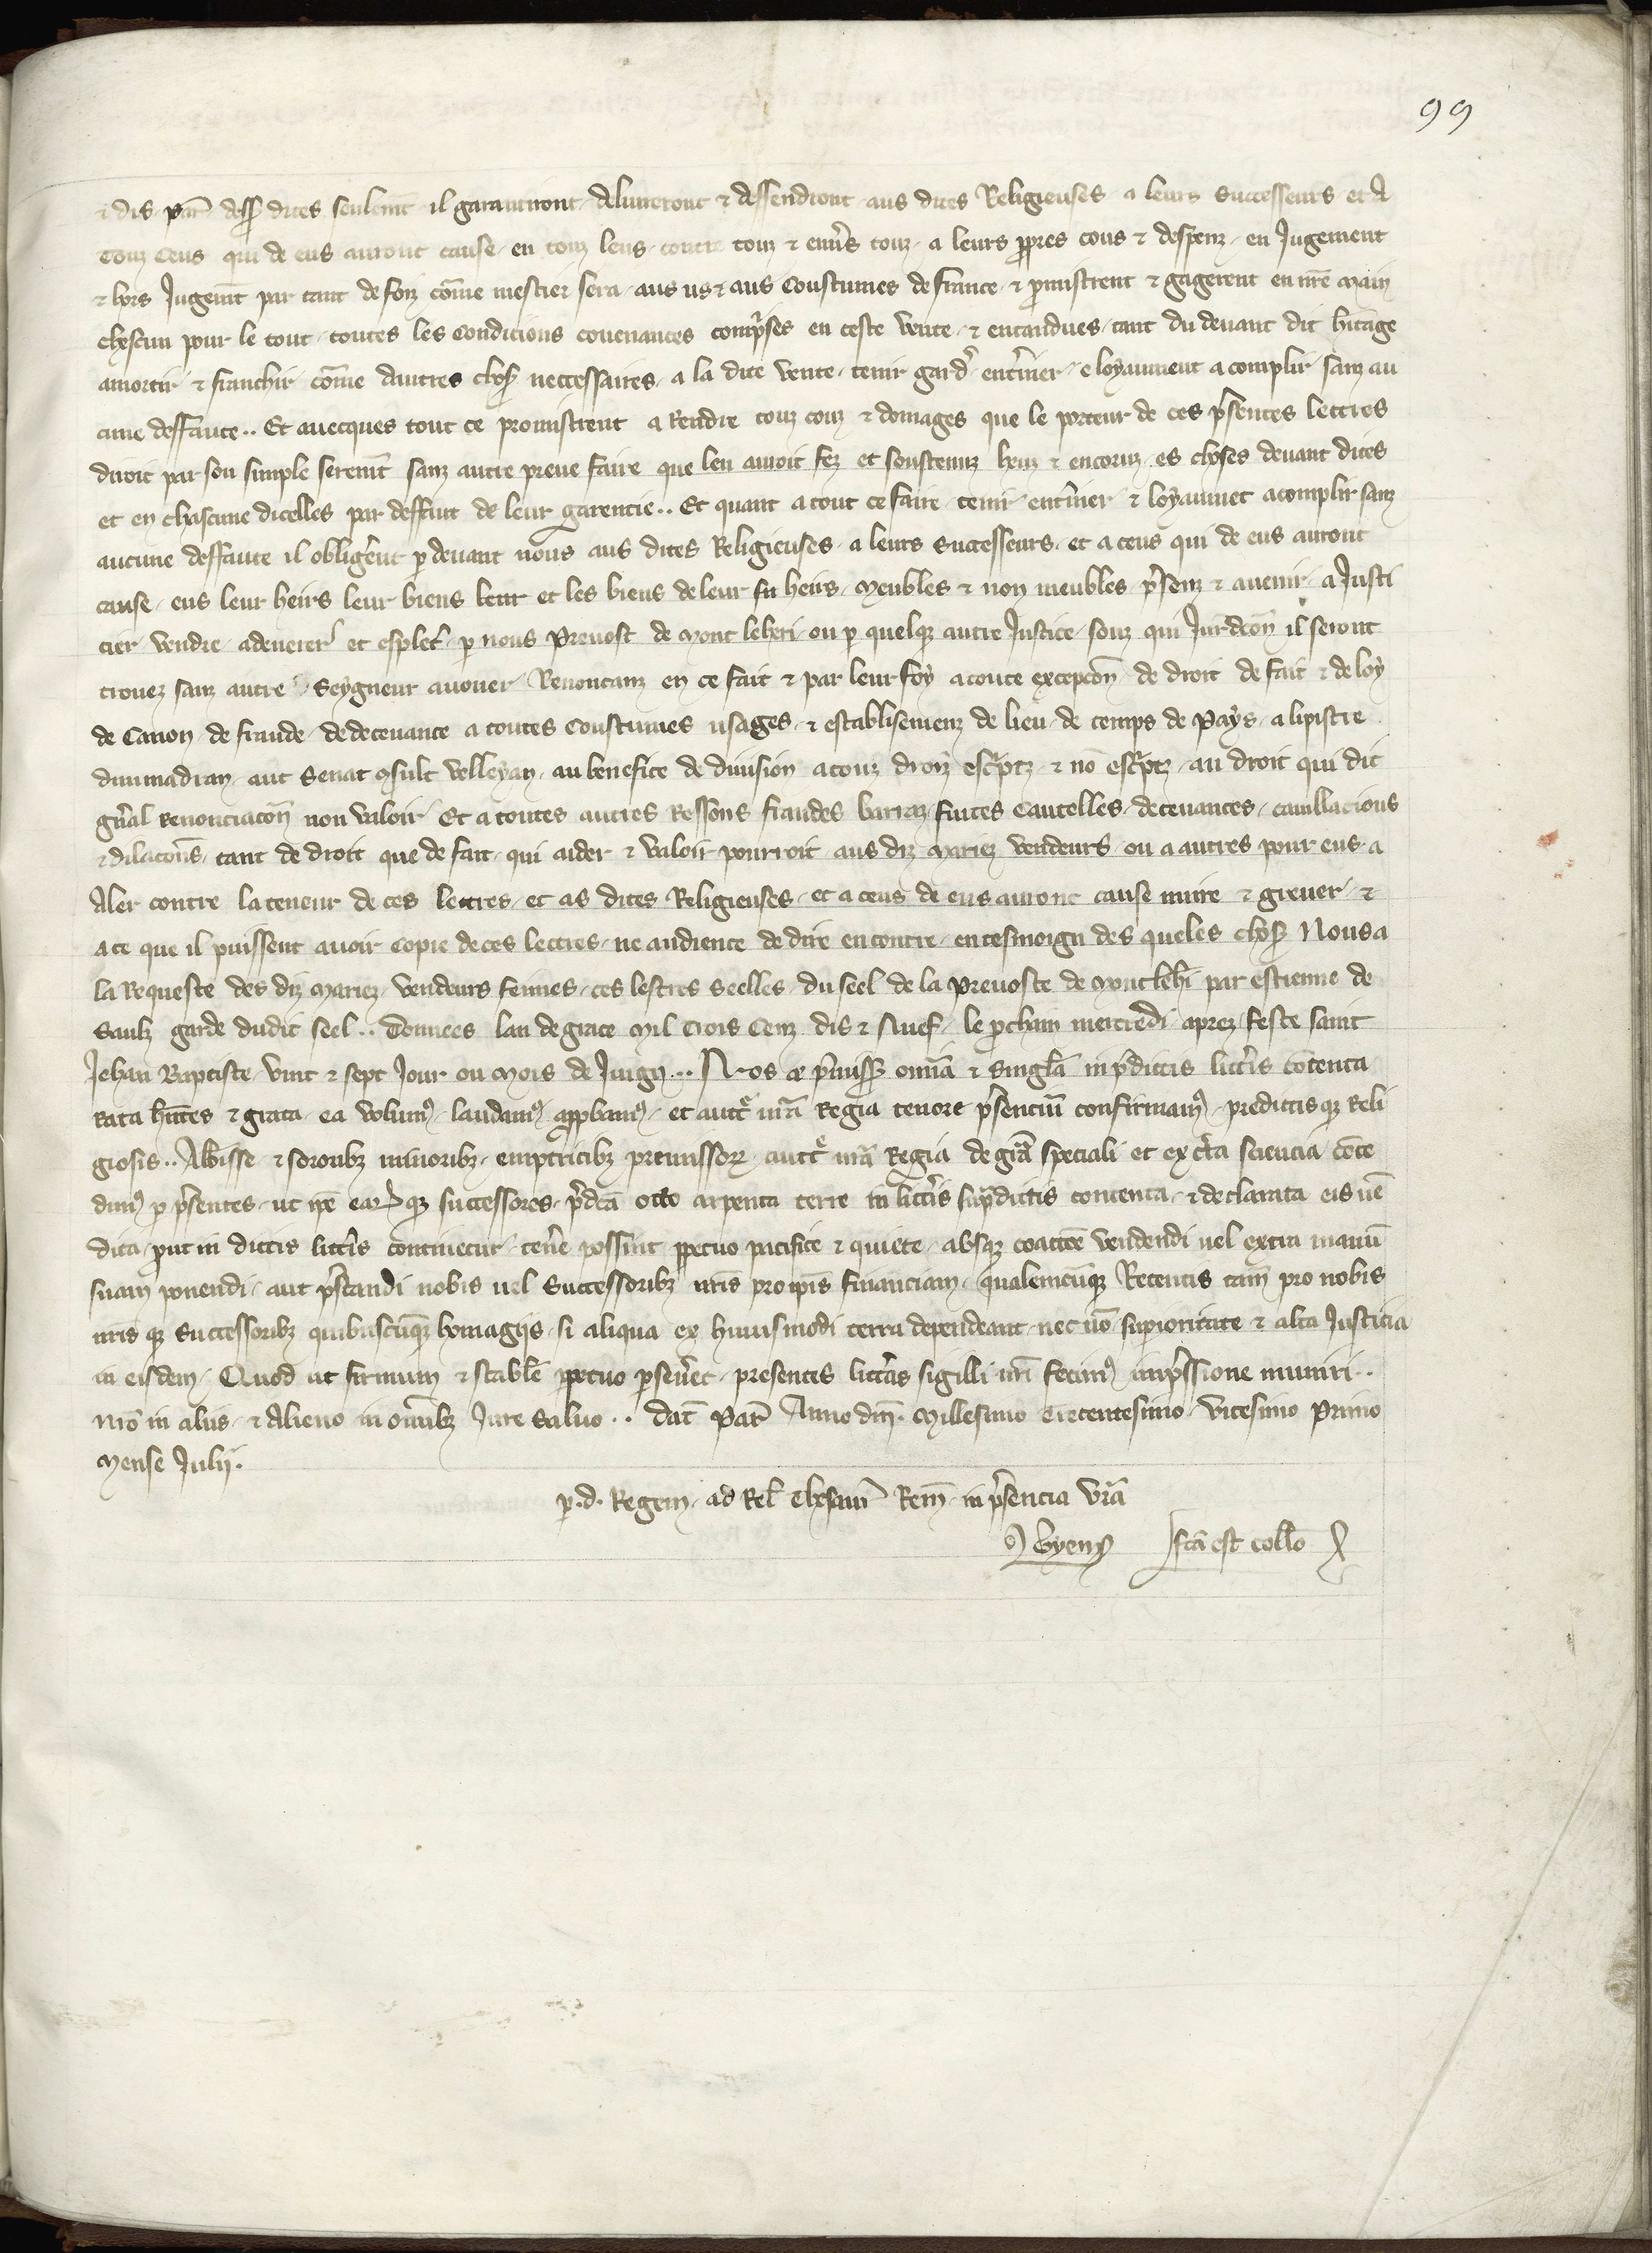 99
⁊ dis par̃ dess̾ dites seulem̃t il garantiront deliurront ⁊ deffendront aus dites Religieuses a leurs Successeurs et A
Touz Ceus qui de eus auront cause en touz leus contre touz ⁊ enuers touz a leurs ꝓpres cous ⁊ despenz en Jugement
⁊ hors Jugem̃t par tant de foiz cõme mestier sera aus us ⁊ aus Coustumes de france ⁊ ꝓmistrent ⁊ gagerent en nr̃e Main
chascun pour le tout toutes les Condicions couenances comp̾ses en ceste vente ⁊ entandues tant du deuant dit h̾itage
amortir ⁊ franchir cõme dautres chos̾ neccessaires a la dite vente tenir gard̾ ent̾iner e loyaument acomplir sanz au
cune deffaute .. Et auecques tout ce promistrent a Rendre touz couz ⁊ domages que le porteur de ces p̾sentes lettres
diroit par son simple serem̃t sanz autre preue faire que len auroit fez et soustenuz heuz ⁊ encoruz es choses deuant dites
et en chascune dicelles par deffaut de leur garentie .. Et quant a tout ce faire tenir ent̾iner ⁊ loyaumet acomplir sanz
aucune deffaute il oblig̾ent ꝑ deuant nous aus dites Religieuses a leurs Successeurs et a ceus qui de eus auront
cause eus leur heirs leur biens leur et les biens de leur heirs Meubles ⁊ non meubles p̾senz ⁊ auenir a Justi
cier vendre adenerer et esplet̾ ꝑ nous Preuost de Mont leheri ou ꝑ quelqꝫ autre Justice souz qui Jurdcõn il seront
trouez sanz autre Seygneur auouer Renoncanz en ce fait ⁊ par leur foy a toute excepcõn de droit de fait ⁊ de loy
de Canon de fraude de deceuance a toutes Coustumes usages ⁊ establisemenz de lieu de temps de Pays a lipistre
diuimadrian aut Senat ꝯsult velleyan au benefice de diuision a touz droiz esc̾ptz ⁊ nõ esc̾ptz au droit qui dit
gñal renonciacõn non valoir Et a toutes autres Ressons fraudes barraz fuites Cautelles deceuances cauillacions
⁊ dilacõns tant de droit que de fait qui aider ⁊ valoir pourroit aus diz Mariez vendeurs ou a autres pour eus a
Aler contre la teneur de ces lettres et as dites Religieuses et a ceus de eus auront cause nuire ⁊ greuer ⁊
a ce que il puissent auoir Copie de ces lettres ne audience de dire encontre en tesmoign des queles chos̾ Nous a
la Requeste des diz Mariez vendeurs feimes ces lestres Seelles du seel de la Preuoste de Montleh̾i par estienne de
Saulz garde dudit seel .. Donnees lan de grace Mil trois Cenz dis ⁊ Nuef le ꝓchain mercredi aprez feste saint
Jehan Baptiste vint ⁊ sept Jour ou Mois de Juign ... Nos aũ p̾miss̾ om̃ia ⁊ singl̃a in p̾dictis litt̾is cõtenta
rata h̃ntes ⁊ grata ea volum9 laudam9 apꝓbam9 et auct̾e nr̃a Regia tenore p̾senciũ confirmam9 predictisqꝫ Reli
giosis .. Abb̃isse ⁊ sororibꝫ minoribꝫ emptricibꝫ premissoꝝ auct̾e nr̃a Regia de gr̃a speciali et ex c̾ta sciencia cõce
dim9 ꝑ p̾sentes ut ip̃e eaꝝqꝫ successores p̾dc̃a octo arpenta terre in litt̾is sup̾dictis contenta ⁊ declarata eis uẽ
dita ꝓut in dictis litt̾is continetur ten̾e possint ꝑpetuo pacifice ⁊ quiete absqꝫ coactõe vendendi uel extra manũ
suam ponendi aut p̾standi nobis uel Successoribꝫ nr̃is pro ip̃is financiam qualemcũqꝫ Retentis tam̃ pro nobis
nr̃isqꝫ Successoribꝫ quibuscũqꝫ homagijs si aliqua ex huiusmodi terra dependeant nec nõ sup̾ioritate ⁊ alta Justicia
in eisdem Quod ut firmum ⁊ stabl̃e ꝑpetuo ꝑseu̾et presentes litt̾as sigilli nr̃i fecim9 imp̾ssione muniri ..
nr̃o in aliis ⁊ Alieno in om̃ibꝫ Jure Saluo .. dat̃ Par̃ Anno dñi Millesimo Trecentesimo vicesimo Primo
Mense Julij.
ꝑ .d. Regem ad Rel̃ thesaur̃ Rem̃ in p̾sencia vr̃a
Gyem9 fc̃a est coll̃o